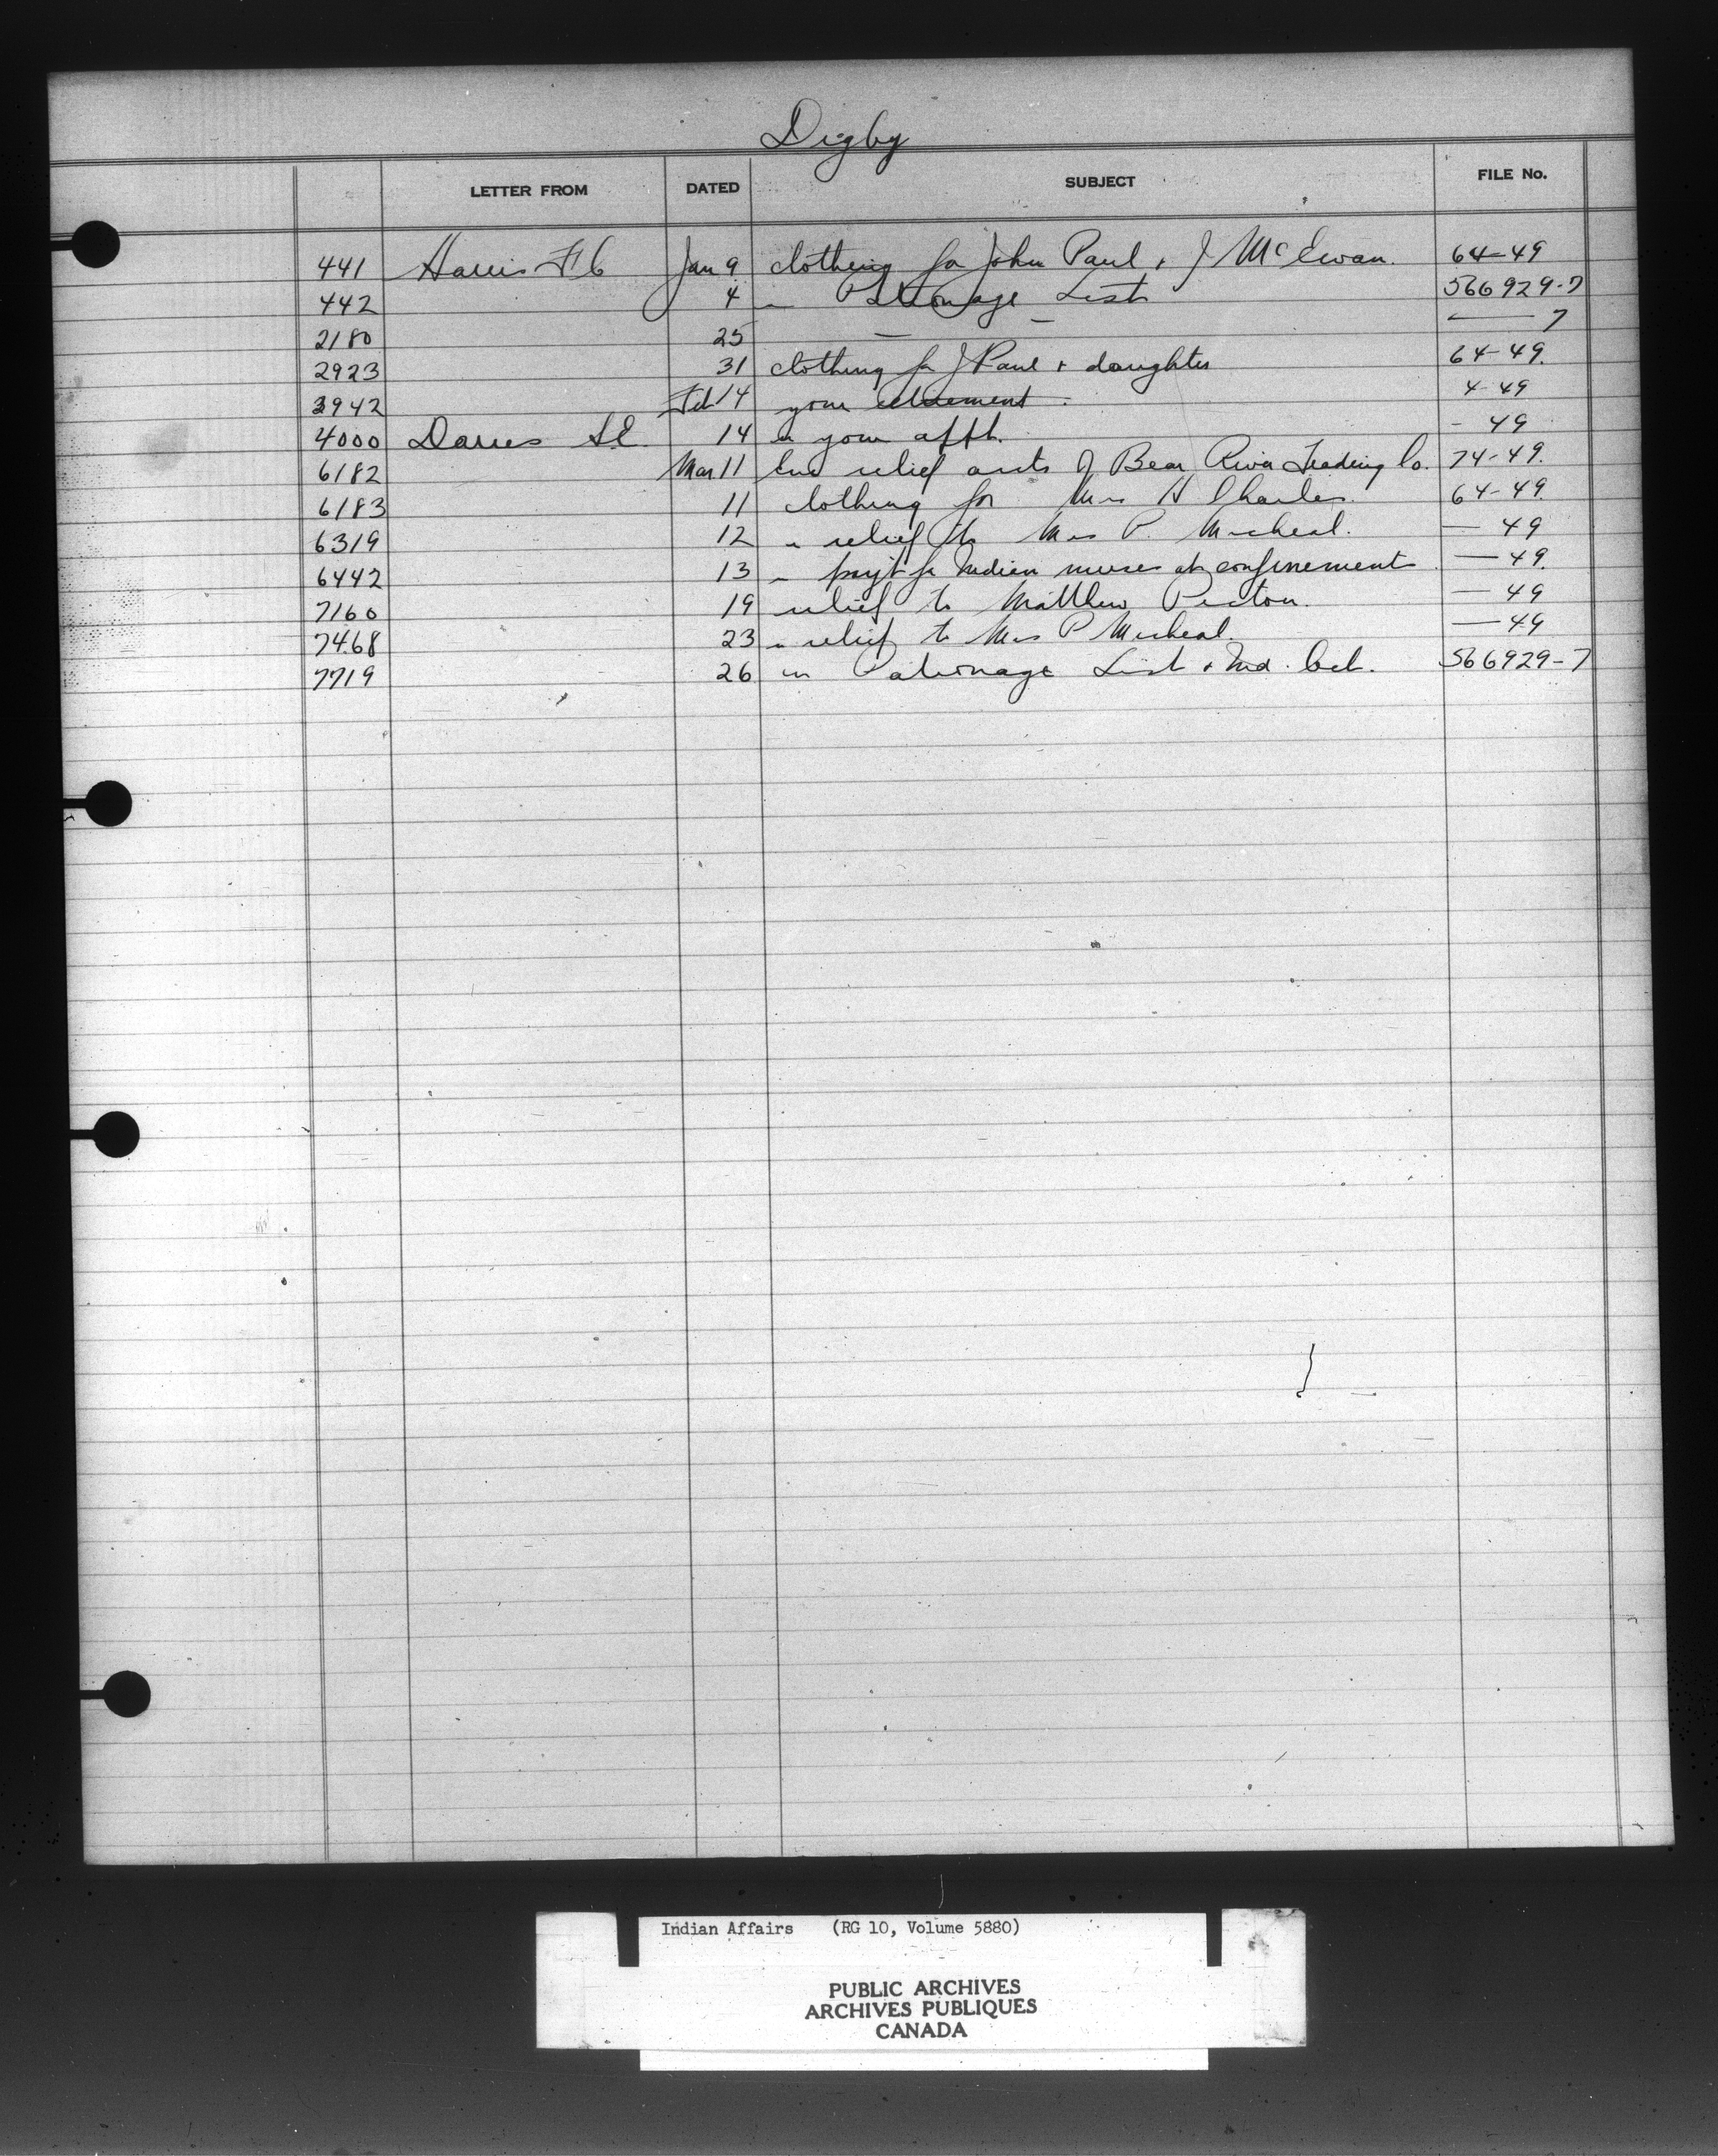 Digby
LETTER FROM DATED SUBJECT FILE No.
441 Harris F C Jan 9 clothing for John Paul & J McEwan. 64-49
442 4 " Patronage List 566929-7
2180 25 — — — 7
2923 31 clothing for J Paul & daughter 64-49.
3942 Feb 14 your retirement. 4-49
4000 Davies S.E. 14 " your appt. - 49
6182 Mar 11 Enc relief accts of Bear River Trading Co. 74-49.
6183 11 clothing for Mrs H Charles. 64-49.
6319 12 " relief to Mrs P. Micheal. — 49
6442 13 " payt for Indian nurse at confinement — 49.
7160 19 relief to Matthew Picton. — 49
7468 23 " relief to Mrs P Micheal. — 49
7719 26 " Patronage List & Ind. Act. 566929-7
Indian Affairs (RG 10, Volume 5880)
PUBLIC ARCHIVES
ARCHIVES PUBLIQUES
CANADA